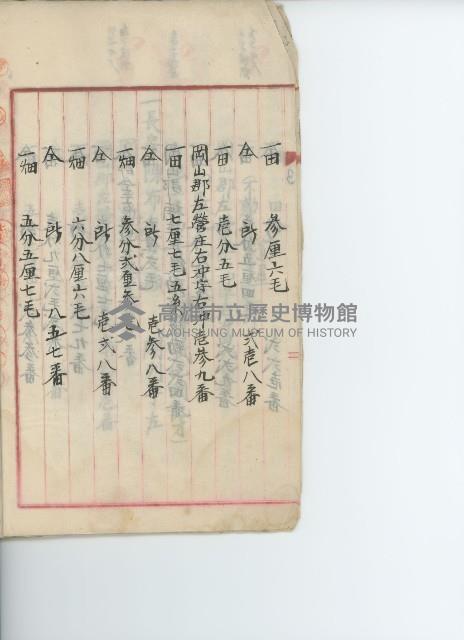 一田 參厘六毛
仝 所 弐壱八番
一田 壱分五毛
岡山郡左營庄右冲字右冲壱參九番
一田 七厘七毛五糸
仝 所 壱參八番
一畑 參分弐厘
仝 所 壱弐八番
一畑 六分八厘六毛
仝 所 八五七番
一畑 五分五厘七毛
高雄市立歷史博物館
KAOHSIUNG MUSEUM OF HISTORY